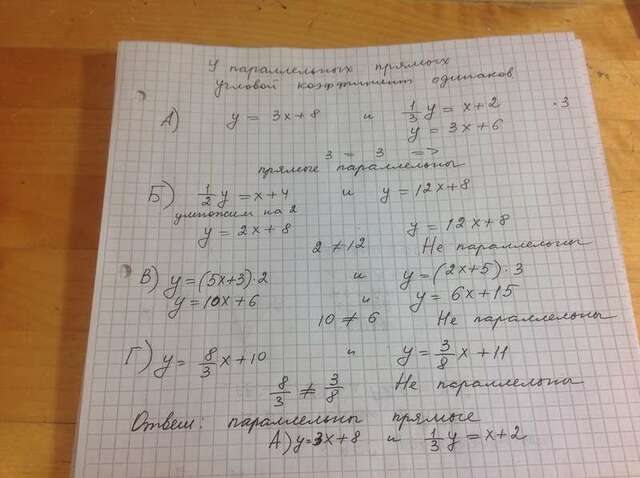 У параллельных прямых
угловой коэффициент одинаков
А) y = 3x+8 и 1/3 y = x+2 ·3
y = 3x+6
3 = 3 =>
прямые параллельны
Б) 1/2 y = x+4 и y = 12x+8
умножим на 2
y = 2x+8 y = 12x+8
2 ≠ 12 Не параллельны
В) y = (5x+3)·2 и y = (2x+5)·3
y = 10x+6 и y = 6x+15
10 ≠ 6 Не параллельны
Г) y = 8/3 x+10 и y = 3/8 x+11
8/3 ≠ 3/8 Не параллельны
Ответ: параллельны прямые
А) y=3x+8 и 1/3 y = x+2